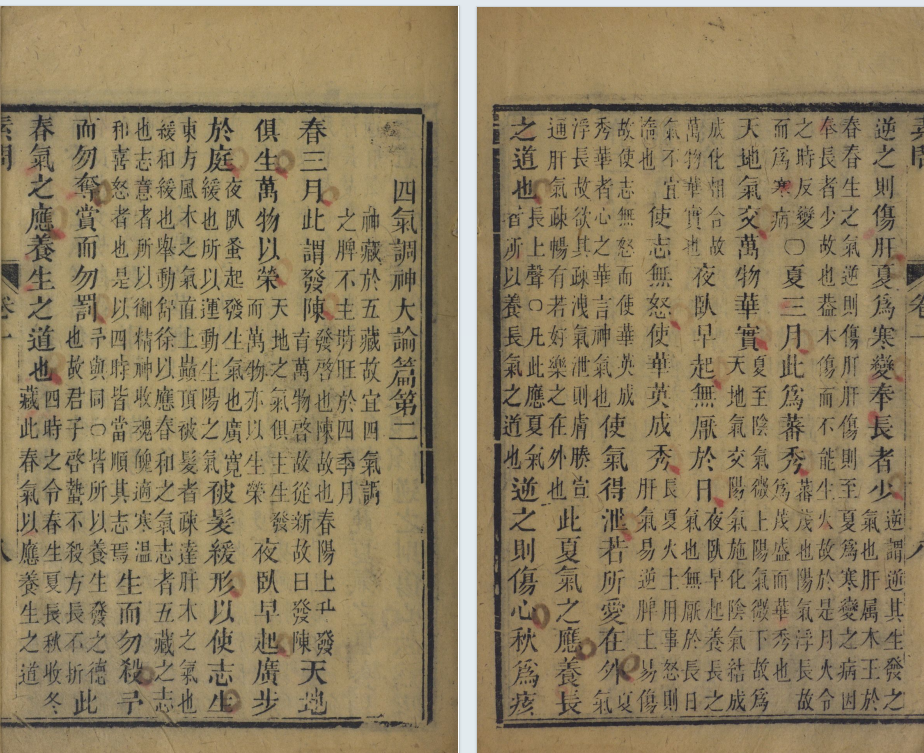 四氣調神大論篇第二
神藏於五藏故宜四氣調之脾不主時旺於四季月
春三月此謂發陳發啓也陳故也春陽上升發育萬物啓故從新故曰發陳天地
俱生萬物以榮天地之氣俱主生發而萬物亦以生榮夜臥早起廣步
於庭夜臥蚤起發生氣也廣寬緩也所以運動生陽之氣被髮緩形以使志生
東方風木之氣直上巔頂被髮者疎達肝木之氣也緩和緩也舉動舒徐以應春和之氣志者五藏之志
也志意者所以御精神收魂魄適寒溫和喜怒者也是以四時皆當順其志焉生而勿殺予
而勿奪賞而勿罰予與同○皆所以養生發之德也故君子啓蟄不殺方長不折此
春氣之應養生之道也四時之令春生夏長秋收冬藏此春氣以應養生之道
素問 卷一 八
逆之則傷肝夏爲寒變奉長者少逆謂逆其生發之氣也肝属木王於
春春生之氣逆則傷肝肝傷則至夏爲寒變之病因奉長者少故也葢木傷而不能生火故於是月火令
之時反變而爲寒病○夏三月此爲蕃秀蕃茂也陽氣浮長故爲茂盛而華秀也
天地氣交萬物華實夏至陰氣微上陽氣微下故爲天地氣交陽氣施化陰氣結成
成化相合故萬物華實也夜臥早起無厭於日夜臥早起養長之氣也無厭於長日
氣不宜惰也使志無怒使華英成秀長夏火土用事怒則肝氣易逆脾土易傷
故使志無怒而使華英成秀華者心之華言神氣也使氣得泄若所愛在外夏氣
浮長故欲其疎洩氣泄則膚腠宣通肝氣疎暢有若好樂之在外也此夏氣之應養長
之道也長上聲○凡此應夏氣者所以養長氣之道也逆之則傷心秋爲痎
素問 卷一 八